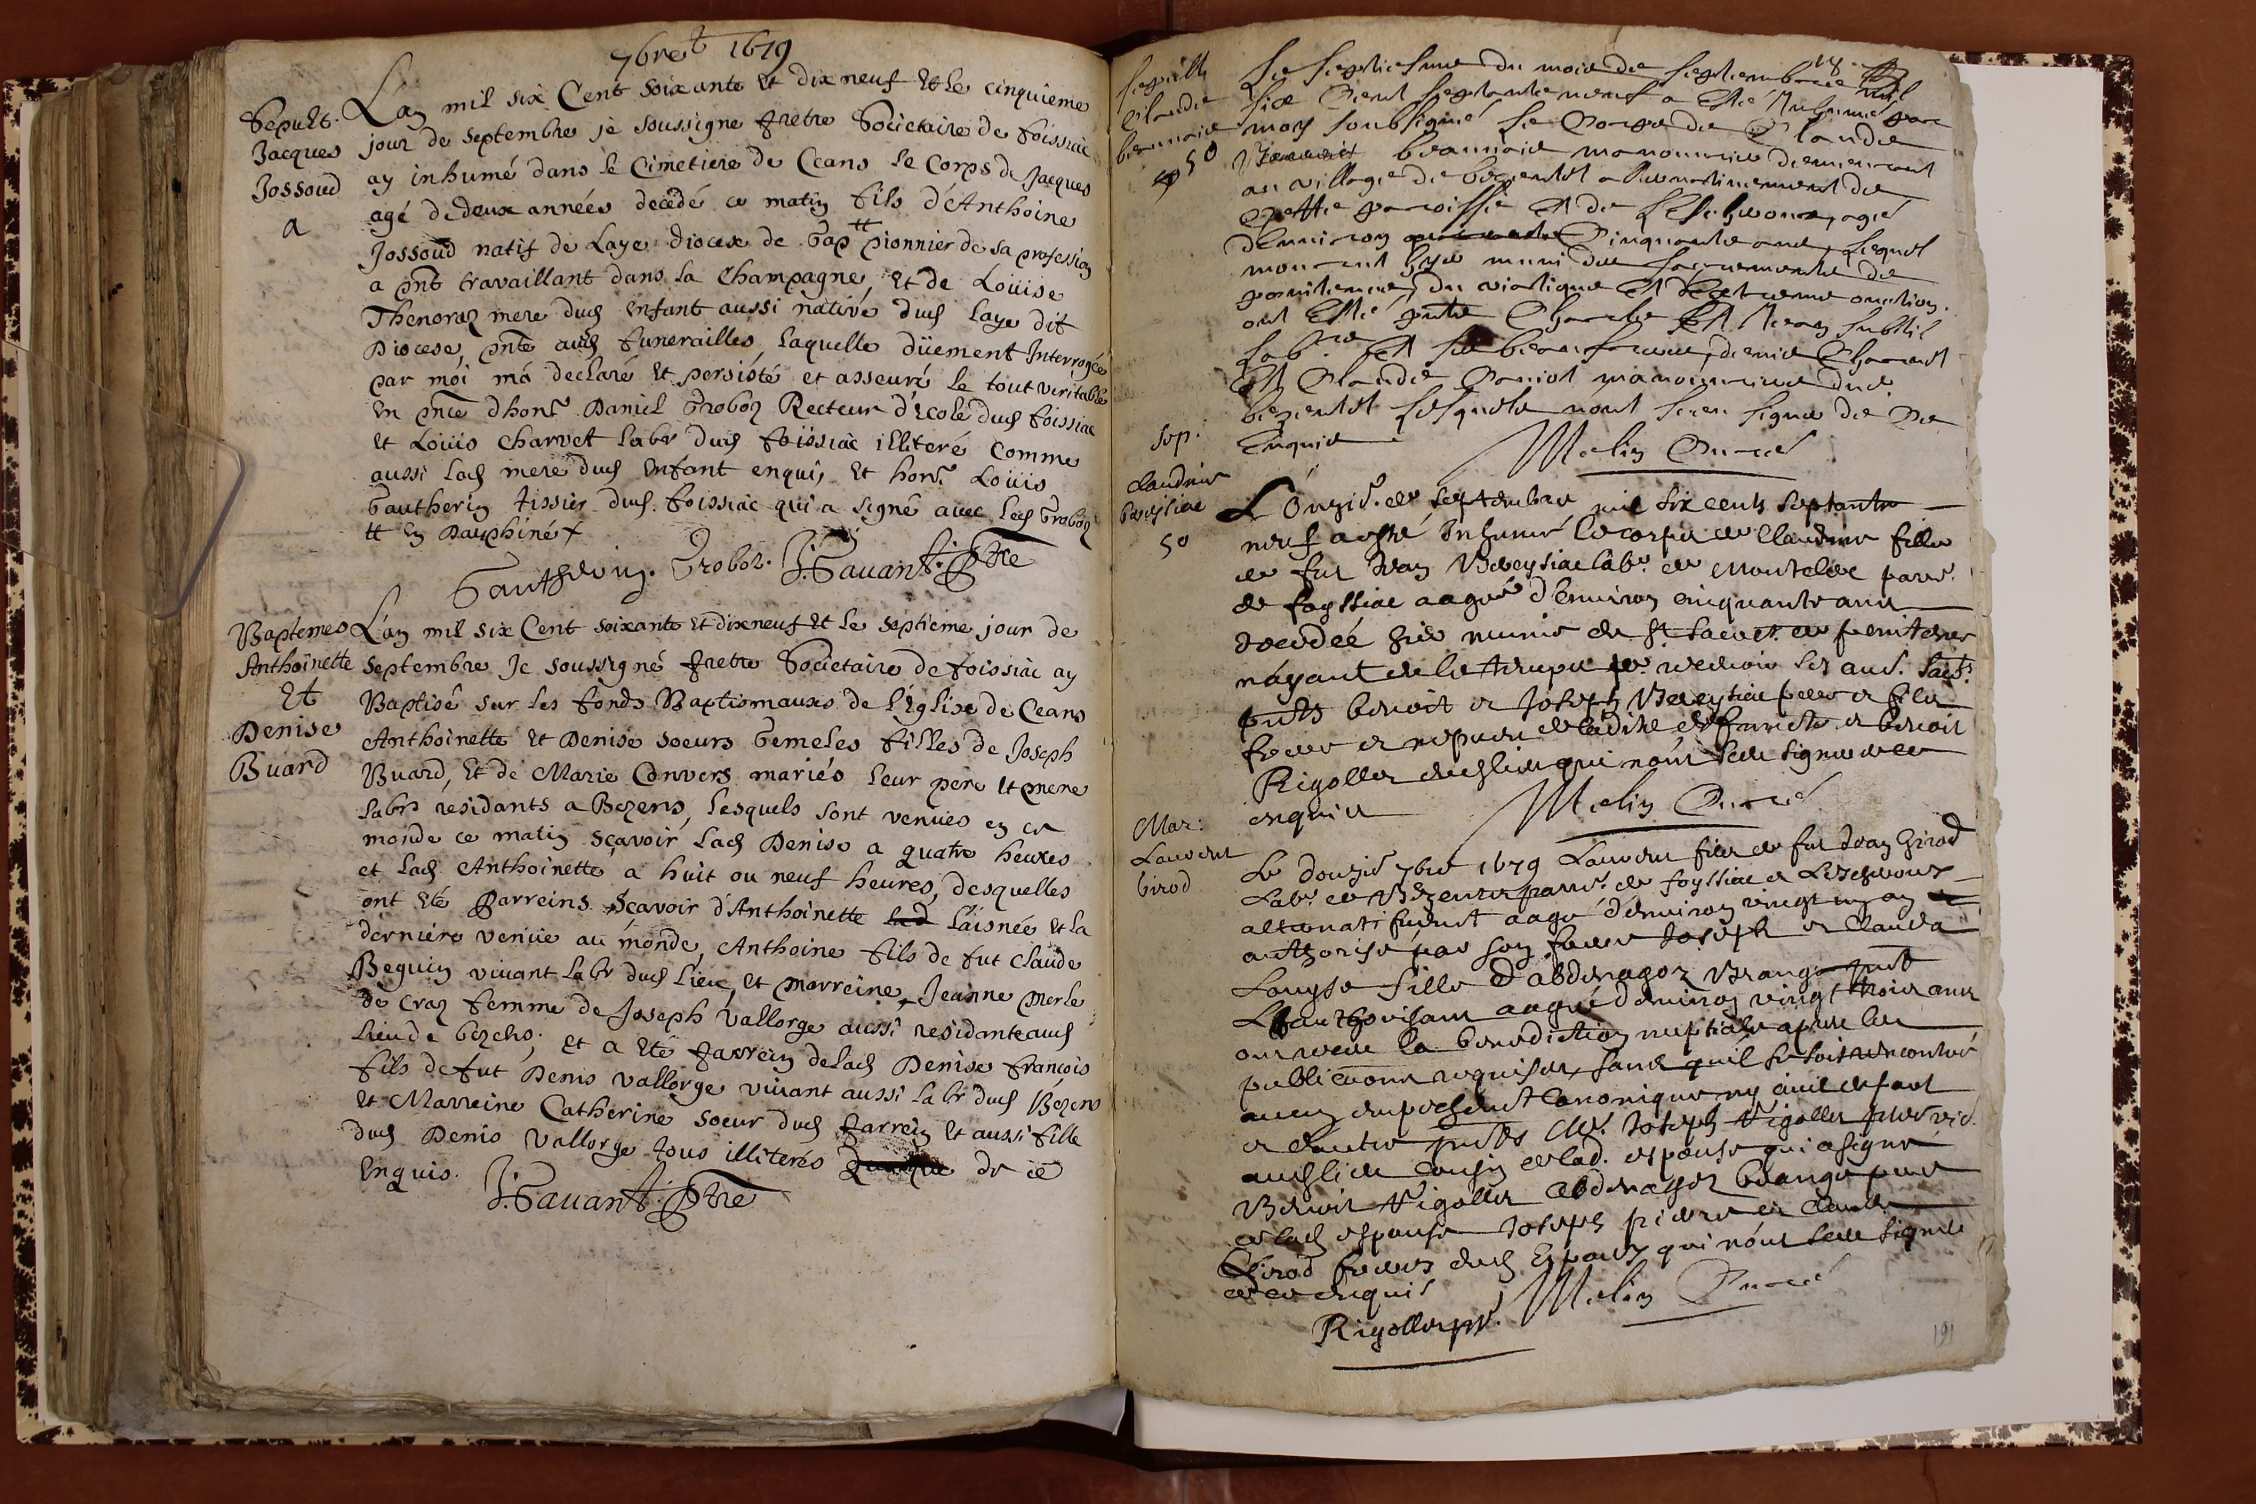 7bre 1679
Sepult.
Jacques
Jossoud
a
L'an mil six Cent soixante et dix neuf et le cinquieme
jour de Septembre je soussigne pretre Societaire de foissiac
ay inhumé dans le Cimetiere de Ceans le Corps de Jacques
agé de deux années decedé ce matin fils d'Anthoine
Jossoud natif de Laye diocese de Gap tt pionnier de sa profession
a pnt travaillant dans la Champagne, et de Loüise
Thenoraz mere dud enfant aussi native dud Laye dit
Diocese, pnte aud funerailles, laquelle düement Interrogée
par moi m'a declaré et persisté et asseuré le tout veritable
en pnce d'honr. Daniel Groboz Recteur d'Ecole dud foissiac
et Loüis Charvet labr dud foissiac illiteré comme
aussi lad mere dud enfant enquis, et honr. Loüis
Gautherin tissier dud. foissiac qui a signé avec led Groboz
tt en Dauphiné +
Gautherin. Groboz. J. Gavant. Ptre
Baptemes
Anthoinette
Et
Denise
Buard
L'an mil six Cent soixante et dixneuf et le septieme jour de
Septembre Je soussigné pretre Societaire de foissiac ay
Baptisé sur les fonds Baptismaux de l'Eglise de Ceans
Anthoinette et Denise soeurs Gemeles filles de Joseph
Buard, et de Marie Convers mariés leur pere et mere
labrs residants a Bezens, lesquels sont venües en ce
monde ce matin sçavoir lad Denise a quatre heures
et lad Anthoinette a huit ou neuf heures, desquelles
ont eté Parreins sçavoir d'Anthoinette l'aisnée et la
derniere venüe au monde, Anthoine fils de fut Claude
Beguin vivant labr dud lieu, et marreine Jeanne merle
de Craz femme de Joseph Vallorge aussi residante aud
lieu de bezens; et a eté parrein de lad Denise François
fils de fut Denis Vallorge vivant aussi labr dud Bezens
et Marreine Catherine soeur dud parrein et aussi fille
dud Denis Vallorge tous illiterés de ce
enquis. J. Gavant. Ptre
sepult
Claude
beauvois
50
Le septiesme du mois de septembre mil
six Cent septante neuf a esté Inhumé par
moy soubsigné le Corps de Claude
manouvrier demeurant
au village de alternativement de
Cette paroisse et de age
d'environ Cinquante ans, lequel
mourant muni des sacrements de
penitence, du viatique et d'extreme onction.
ont esté pnts Charles et Jean
lab. et son beaufrere, denis Charvet
et Claude manouvriers dud
lesquels n'ont sceu signer de ce
Enquis
Melin Curé
Sep.
Claudine
50
L'onzie. de septembre mil six cents septante
neuf a esté Inhumé le corps de Claudine fille
de fut Jean labr. de paroi.
de foyssiac aagée d'environ cinquante ans
decedée hier munie du st sacret. de penitence
n'ayant de le temps pr. recevoir les aut. sacts.
pnts benoit et Joseph pere et fils
frere et nepveu de ladite deffuncte et benoit
Rigollet dud lieu qui n'ont sceu signer de ce
enquis
Melin Curé
Mar:
Laurent
Girod
Le douzie 7bre 1679 Laurent fils de fut Jean Girod
Labr. de Bezens parroi. de foyssiac et
alternativement aagé d'environ vingt un an
authorisé par son frere Joseph et Clauda
Louyse fille d'abdenagoz Brange pnt
L'authorisant aagée d'environ vingt trois ans
ont receu la benediction nuptiale apres les
publications requises, sans quil se soit rencontré
aucun empeschement Canonique ny civil
et d'autre pnts Mr. Joseph Rigollet
aud lieu cousin de lad. espouse qui a signé
Benoit Rigollet Abdenagoz brange pere
de lad espouse Joseph pierre et Claude
Girod freres dud Espoux qui n'ont sceu signer
de ce enquis
Rigollet Melin Curé
191